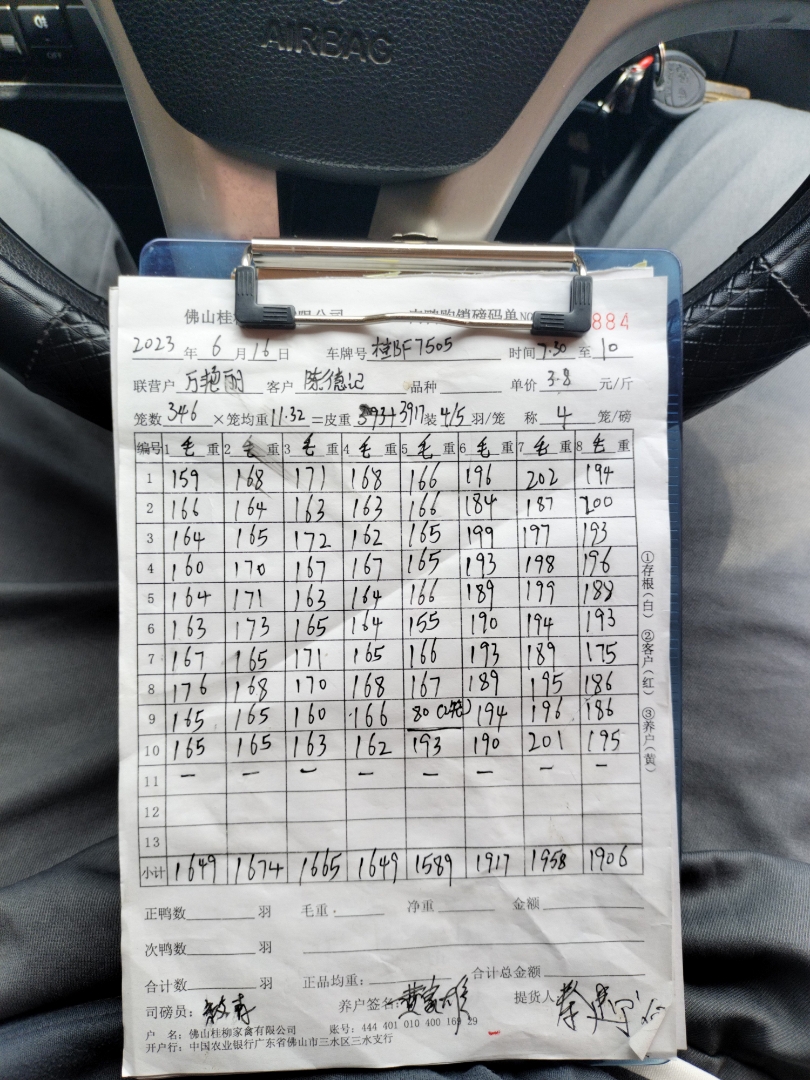 AIRBAG
OFF
佛山桂 限公司 肉鸭购销磅码单NO 884
2023 年 6 月 16 日 车牌号 桂BF7505 时间 7.30 至 10
联营户 万艳丽 客户 陈德记 品种 单价 3.8 元/斤
笼数 346 ×笼均重 11.32 =皮重 3917 装 4/5 羽/笼 称 4 笼/磅
编号 1 毛 重 2 毛 重 3 毛 重 4 毛 重 5 毛 重 6 毛 重 7 毛 重 8 毛 重
1 159 168 171 168 166 196 202 194
2 166 164 163 163 166 184 187 200
3 164 165 172 162 165 199 197 193
4 160 170 167 167 165 193 198 196
5 164 171 163 164 166 189 199 188
6 163 173 165 164 155 190 194 193
7 167 165 171 165 166 193 189 175
8 176 168 170 168 167 189 195 186
9 165 165 160 166 80 (2笼) 194 196 186
10 165 165 163 162 193 190 201 195
11 — — — — — — — —
12
13
小计 1649 1674 1665 1649 1589 1917 1958 1906
①存根(白) ②客户(红) ③养户(黄)
正鸭数 羽 毛重 净重 金额
次鸭数 羽
合计数 羽 正品均重: 合计总金额
司磅员: 养户签名: 黄家 提货人
户 名: 佛山桂柳家禽有限公司 账号: 444 401 010 400 169 29
开户行: 中国农业银行广东省佛山市三水区三水支行